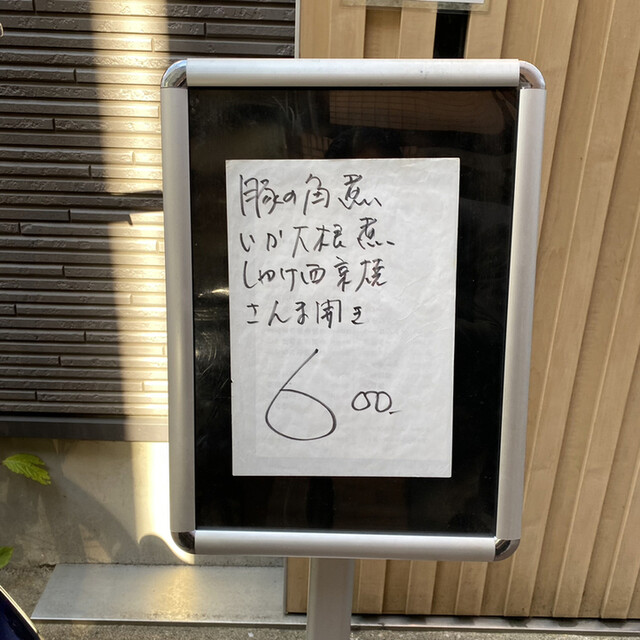 豚の角煮
いか大根煮
しゃけ西京焼
さんま開き
600-